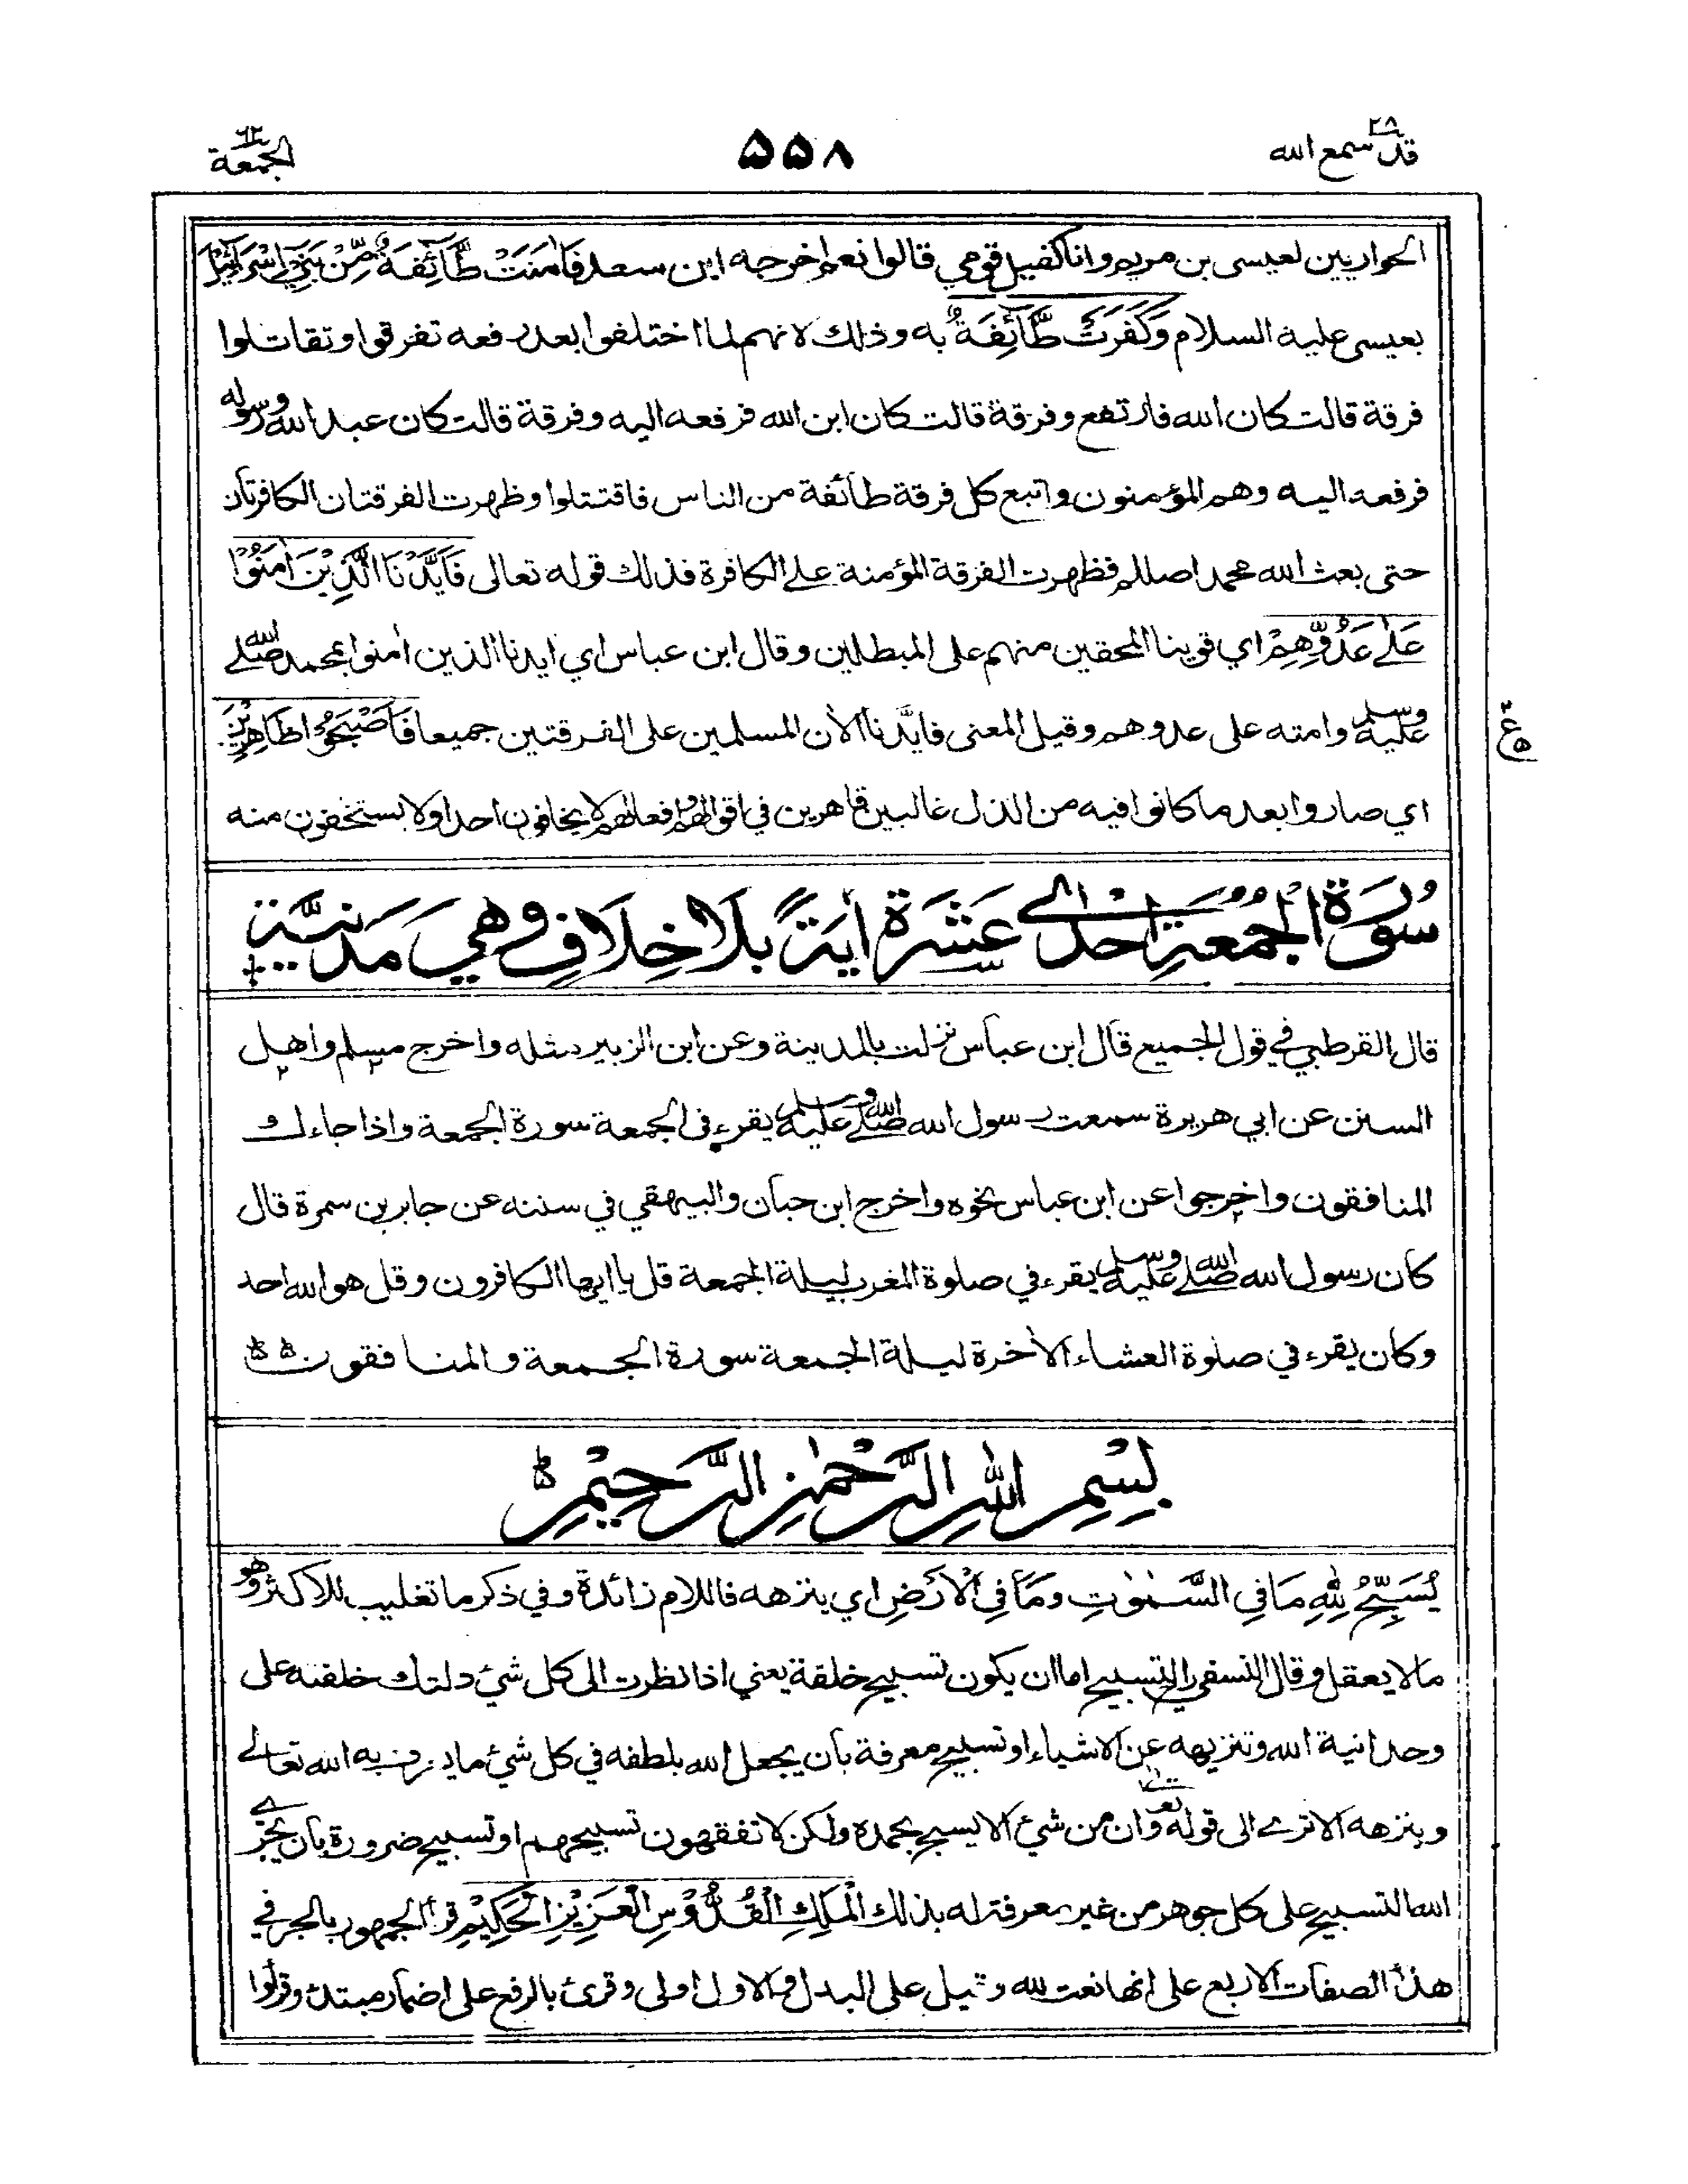 قد سمع الله ٢٨
٥٥٨
الجمعة ٦٢
الحواريين لعيسى بن مريم وانا كفيل قومي قالوا نعم اخرجه ابن سعد فَاٰمَنَتْ طَّآئِفَةٌ مِّنْ بَنِيْٓ اِسْرَآئِيْلَ
بعيسى عليه السلام وَكَفَرَتْ طَّآئِفَةٌ به وذلك لانهم لما اختلفوا بعد رفعه تفرقوا وتقاتلوا
فرقة قالت كان الله فارتفع وفرقة قالت كان ابن الله فرفعه اليه وفرقة قالت كان عبد الله ورسوله
فرفعه اليه وهم المؤمنون واتبع كل فرقة طائفة من الناس فاقتتلوا وظهرت الفرقتان الكافرتان
حتى بعث الله محمدا صللم فظهرت الفرقة المؤمنة على الكافرة فذلك قوله تعالى فَاَيَّدْنَا الَّذِيْنَ اٰمَنُوْا
عَلٰے عَدُوِّهِمْ اي قوينا المحقين منهم على المبطلين وقال ابن عباس اي ايدنا الذين اٰمنوا بمحمد صلے الله
عليه وسلم وامته على عدوهم وقيل المعنى فايّدنا الاٰن المسلمين على الفرقتين جميعا فَاَصْبَحُوْا ظَاهِرِيْنَ
اي صاروا بعد ما كانوا فيه من الذل غالبين قاهرين في اقوالهم وافعالهم لا يخافون احدا ولا يستخفون منه
ع ٥
سُوْرَةُ الْجُمُعَةِ اِحْدٰے عَشَرَةَ اٰيَةً بِلَا خِلَافٍ وَهِيَ مَدَنِيَّةٌ
قال القرطبي في قول الجميع قال ابن عباس نزلت بالمدينة وعن ابن الزبير مثله واخرج مسلم واهل
السنن عن ابي هريرة سمعت رسول الله صلے الله عليه وسلم يقرء في الجمعة سورة الجمعة واذا جاءك
المنافقون واخرجوا عن ابن عباس نحوه واخرج ابن حبان والبيهقي في سننه عن جابر بن سمرة قال
كان رسول الله صلے الله عليه وسلم يقرء في صلوة المغرب ليلة الجمعة قل يا ايها الكافرون وقل هو الله احد
وكان يقرء في صلوة العشاء الاٰخرة ليلة الجمعة سورة الجمعة والمنافقون
بِسْمِ اللّٰهِ الرَّحْمٰنِ الرَّحِيْمِ
يُسَبِّحُ لِلّٰهِ مَا فِي السَّمٰوٰتِ وَمَا فِي الْاَرْضِ اي ينزهه فاللام زائدة وفي ذكر ما تغليب للاكثر وهو
مالا يعقل وقال النسفي رح التسبيح اما ان يكون تسبيح خلقة يعني اذا نظرت الى كل شئ دلتك خلقته على
وحدانية الله وتنزيهه عن الاشياء او تسبيح معرفة بان يجعل الله بلطفه في كل شئ ما يعرف به الله تعالے
وينزهه الا ترے الى قوله تع وان من شئ الا يسبح بحمده ولكن لا تفقهون تسبيحهم او تسبيح ضرورة بان يجرے
الله التسبيح على كل جوهر من غير معرفته له بذلك الْمَلِكِ الْقُدُّوْسِ الْعَزِيْزِ الْحَكِيْمِ قرأ الجمهور بالجر في
هذه الصفات الاربع على انها نعت لله وقيل على البدل والاول اولى وقرئ بالرفع على اضمار مبتدء وقرأوا